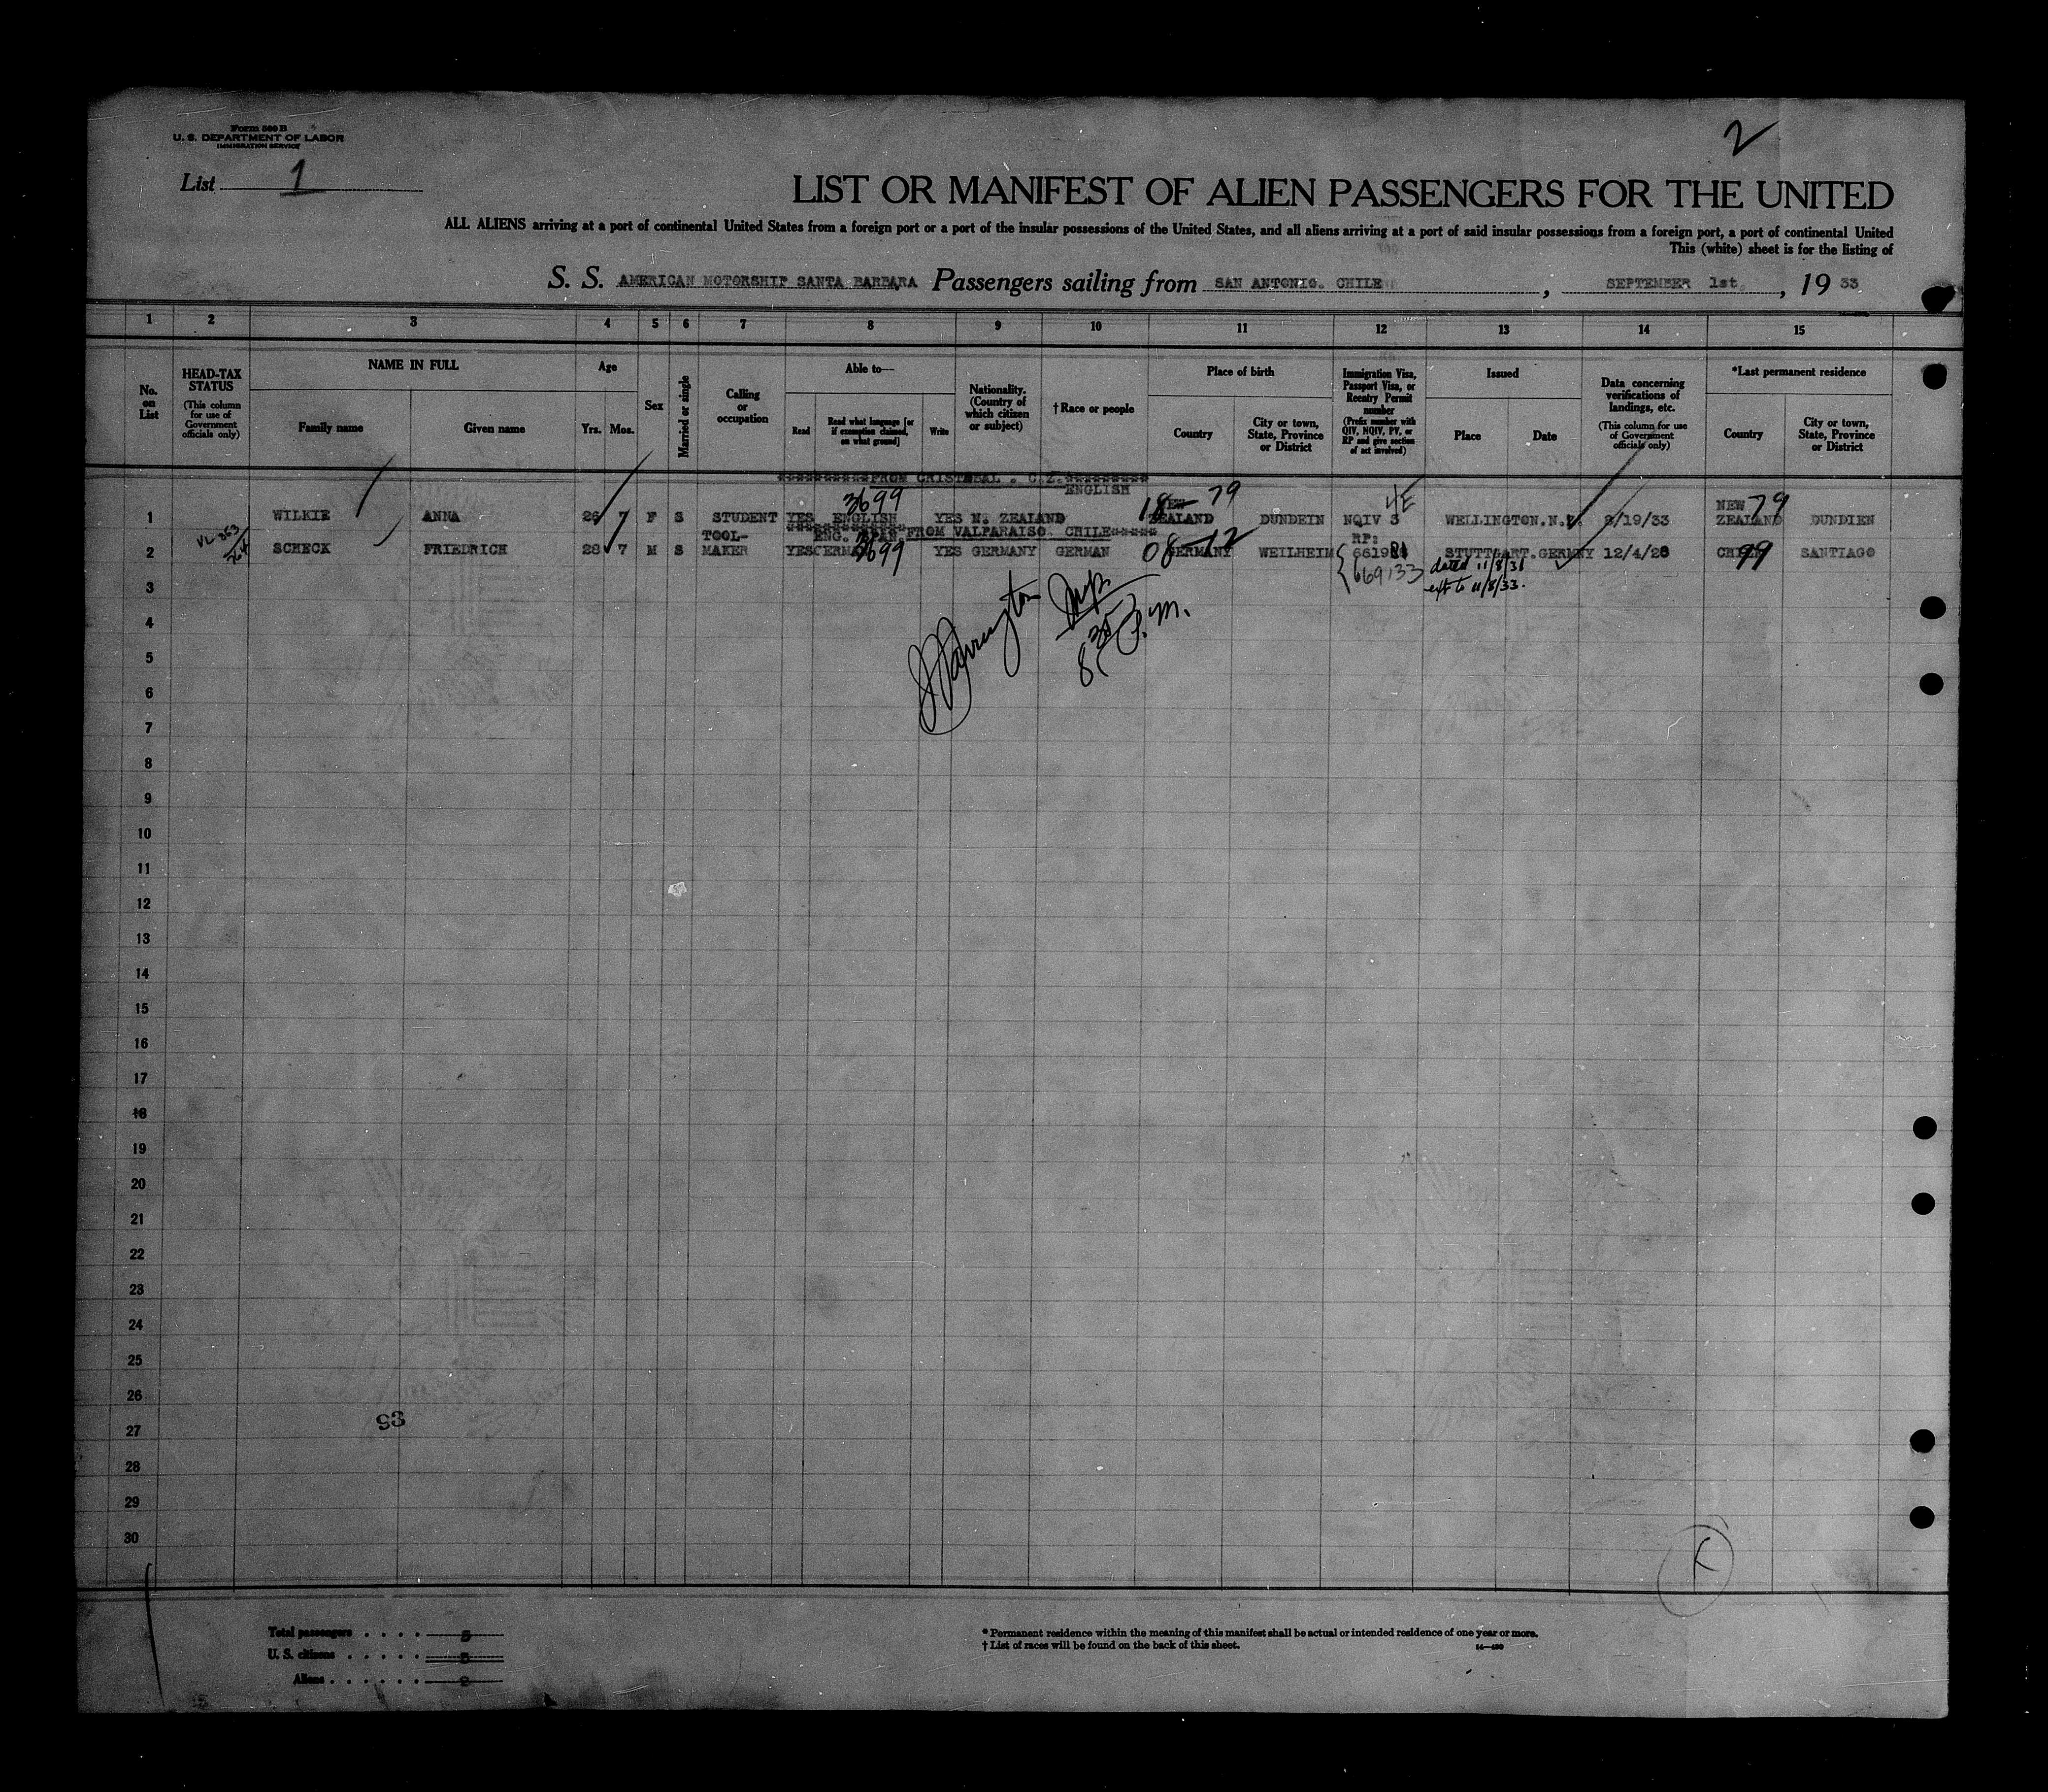 Form 500 B
U. S. DEPARTMENT OF LABOR
IMMIGRATION SERVICE
2
List 1
LIST OR MANIFEST OF ALIEN PASSENGERS FOR THE UNITED
ALL ALIENS arriving at a port of continental United States from a foreign port or a port of the insular possessions of the United States, and all aliens arriving at a port of said insular possessions from a foreign port, a port of continental United
This (white) sheet is for the listing of
S. S. AMERICAN MOTORSHIP SANTA BARBARA Passengers sailing from SAN ANTONIO. CHILE, SEPTEMBER 1st, 19 33
1 2 3 4 5 6 7 8 9 10 11 12 13 14 15
No. on List
HEAD-TAX STATUS
(This column for use of Government officials only)
NAME IN FULL
Family name Given name
Age
Yrs. Mos.
Sex
Married or single
Calling or occupation
Able to—
Read
Read what language [or if exemption claimed, on what ground]
Write
Nationality. (Country of which citizen or subject)
† Race or people
Place of birth
Country
City or town, State, Province or District
Immigration Visa, Passport Visa, or Reentry Permit number
(Prefix number with QIV, NQIV, PV, or RP and give section of act involved)
Issued
Place Date
Data concerning verifications of landings, etc.
(This column for use of Government officials only)
*Last permanent residence
Country
City or town, State, Province or District
FROM CRISTOBAL . C.Z.
3699 ENGLISH 18 NEW 79 4E NEW 79
1 WILKIE ANNA 26 7 F S STUDENT YES ENGLISH YES N. ZEALAND ZEALAND DUNDEIN NQIV 3 WELLINGTON.N.Z. 8/19/33 ZEALAND DUNDIEN
FROM VALPARAISO. CHILE
VL 363 TOOL- ENG. SPAN. 08-12 RP:
2 SCHECK FRIEDRICH 28 7 M S MAKER YES GERMAN 3699 YES GERMANY GERMAN GERMANY WEILHEIM STUTTGART.GERMNY 12/4/28 CHILE 99 SANTIAGO
669133 dated 11/8/31
ext to 11/8/33.
3
4
8 30 P.M.
5
6
7
8
9
10
11
12
13
14
15
16
17
18
19
20
21
22
23
24
25
26
93
27
28
29
30
Total passengers . . . . 5
U. S. citizens . . . . .
Aliens . . . . . . 2
* Permanent residence within the meaning of this manifest shall be actual or intended residence of one year or more.
† List of races will be found on the back of this sheet. 14—430